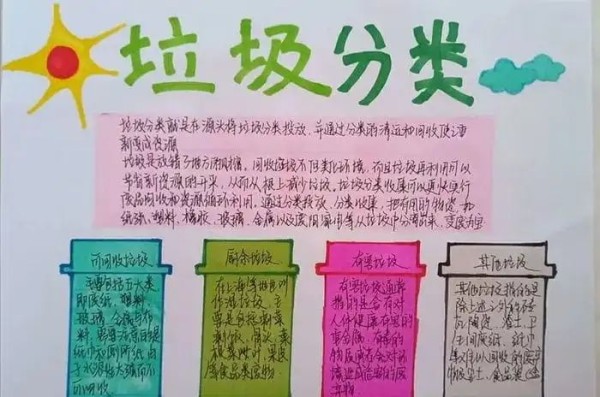 垃圾分类
垃圾分类就是在源头将垃圾分类投放,并通过分类的清运和回收使之重
新变成资源
垃圾是放错了地方的 回收垃圾不但 环境,而且垃圾再利用可以
节省新资源的开采,从而从根上减少垃圾。垃圾分类收集可以更快更行
废品回收和资源循环利用。通过分类投放、分类收集,把有用的物资,如
纸张、塑料、橡胶、玻璃、金属以及废旧家电等从垃圾中分离出来,变废为宝
可回收垃圾
主要包括五大类
即废纸、塑料、
玻璃、金属与布
料,需要注意的是
纸巾和厕所纸由
于水溶性太强而不
可回收
厨余垃圾
在上海等地区叫
作湿垃圾,主
要是包括剩菜
剩饭、骨头、菜
根菜叶、果皮
等食品类废物
有害垃圾
有害垃圾通常
指的是含有对
人体健康有害的
重金属、有毒的
物质或者会对环
境造成
其他垃圾
其他垃圾指的是
除上述之外的砖
瓦陶瓷、渣土、卫
生间废纸、纸巾
等难以回收的废弃